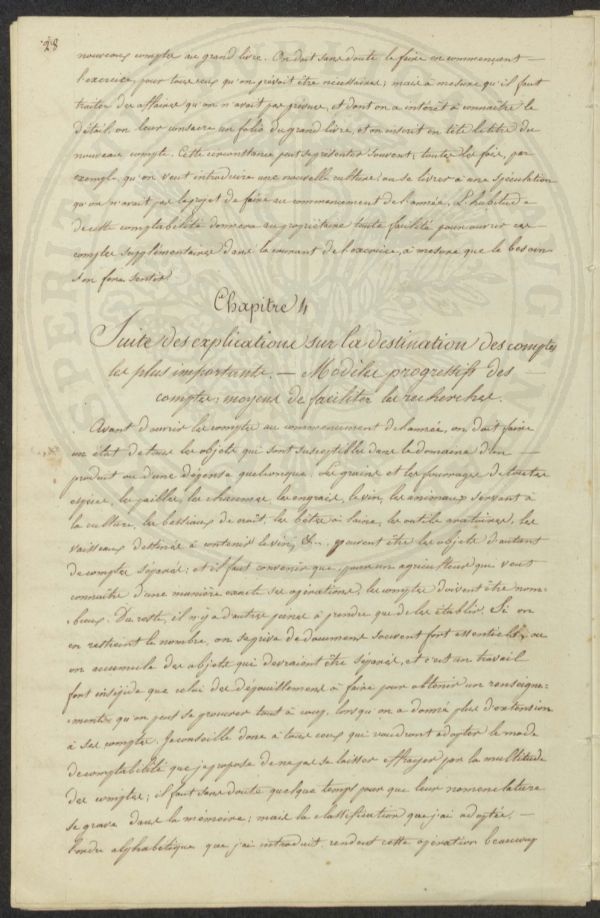 28
nouveaux comptes au grand livre. On doit sans doute le faire en commençant
l'exercice, pour tous ceux qu'on prévoit être nécessaires; mais à mesure qu'il faut
traiter des affaires qu'on n'avait pas prévues, et dont on a intérêt à connaître le
détail, on leur consacre un folio du grand livre, et on inscrit en tête le titre du
nouveau compte. Cette circonstance peut se présenter souvent; toutes les fois, par
exemple qu'on veut introduire une nouvelle culture ou se livrer à une spéculation
qu'on n'avait pas le projet de faire au commencement de l'année. L'habitude
de cette comptabilité donnera au propriétaire toute facilité pour ouvrir ces
comptes supplémentaires dans le courant de l'exercice, à mesure que le besoin
s'en fera sentir
Chapitre 4
Suite des explications sur la destination des comptes
les plus importants. — Modèles progressifs des
comptes; moyens de faciliter les recherches.
Avant d'ouvrir les comptes au commencement de l'année, on doit faire
un état de tous les objets qui sont susceptibles dans le domaine d'un
produit ou d'une dépense quelconque. Les grains et les fourrages de toutes
espèces, les pailles, les chaumes, les engrais, le vin, les animaux servant à
la culture, les bestiaux de croît, les bêtes à laine, les outils aratoires, les
vaisseaux destinés à contenir le vin, &... peuvent être les objets d'autant
de comptes séparés; et il faut convenir que, pour un agriculteur qui veut
connaître d'une manière exacte ses opérations, les comptes doivent être nom-
breux. Du reste, il n'y a d'autre peine à prendre que de les établir. Si on
en restreint le nombre, on se prive de documens souvent fort essentiels, ou
on accumule des objets qui devraient être séparés, et c'est un travail
fort insipide que celui des dépouillemens à faire pour obtenir un renseigne-
ment qu'on peut se procurer tout à coup, lorsqu'on a donné plus d'extension
à ses comptes. Je conseille donc à tous ceux qui voudront adopter le mode
de comptabilité que je propose de ne pas se laisser effrayer par la multitude
des comptes; il faut sans doute quelque temps pour que leur nomenclature
se grave dans la mémoire; mais la classification que j'ai adoptée,
l'ordre alphabétique que j'ai introduit, rendent cette opération beaucoup